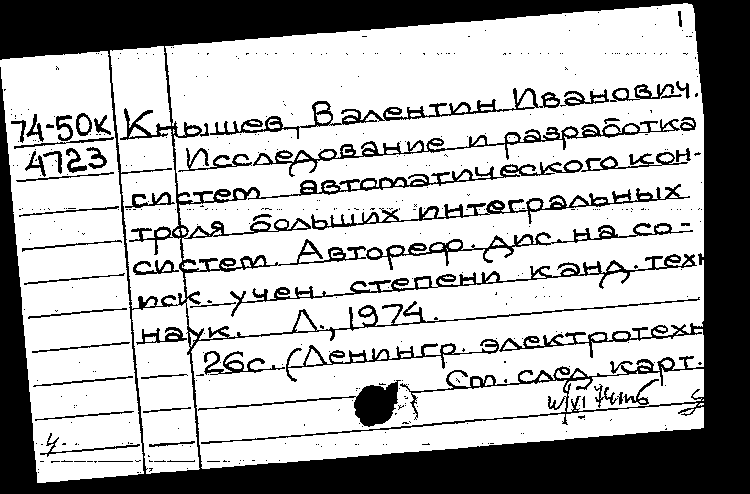 1
74-50к Кнышев, Валентин Иванович.
4723 Исследование и разработка
систем автоматического кон-
троля больших интегральных
систем. Автореф. дис. на со-
иск. учен. степени канд. техн
наук. Л., 1974.
26с. (Ленингр. электротехн
См. след. карт.
ч.